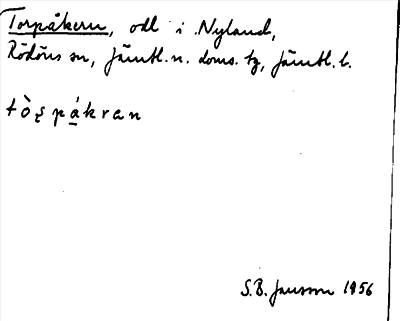 Torpåkern, odl i Nyland,
Rödöns sn, Jämtl. n. doms. tg, Jämtl. l.
tòr̨pá̱kran
S.B. Jansson 1956